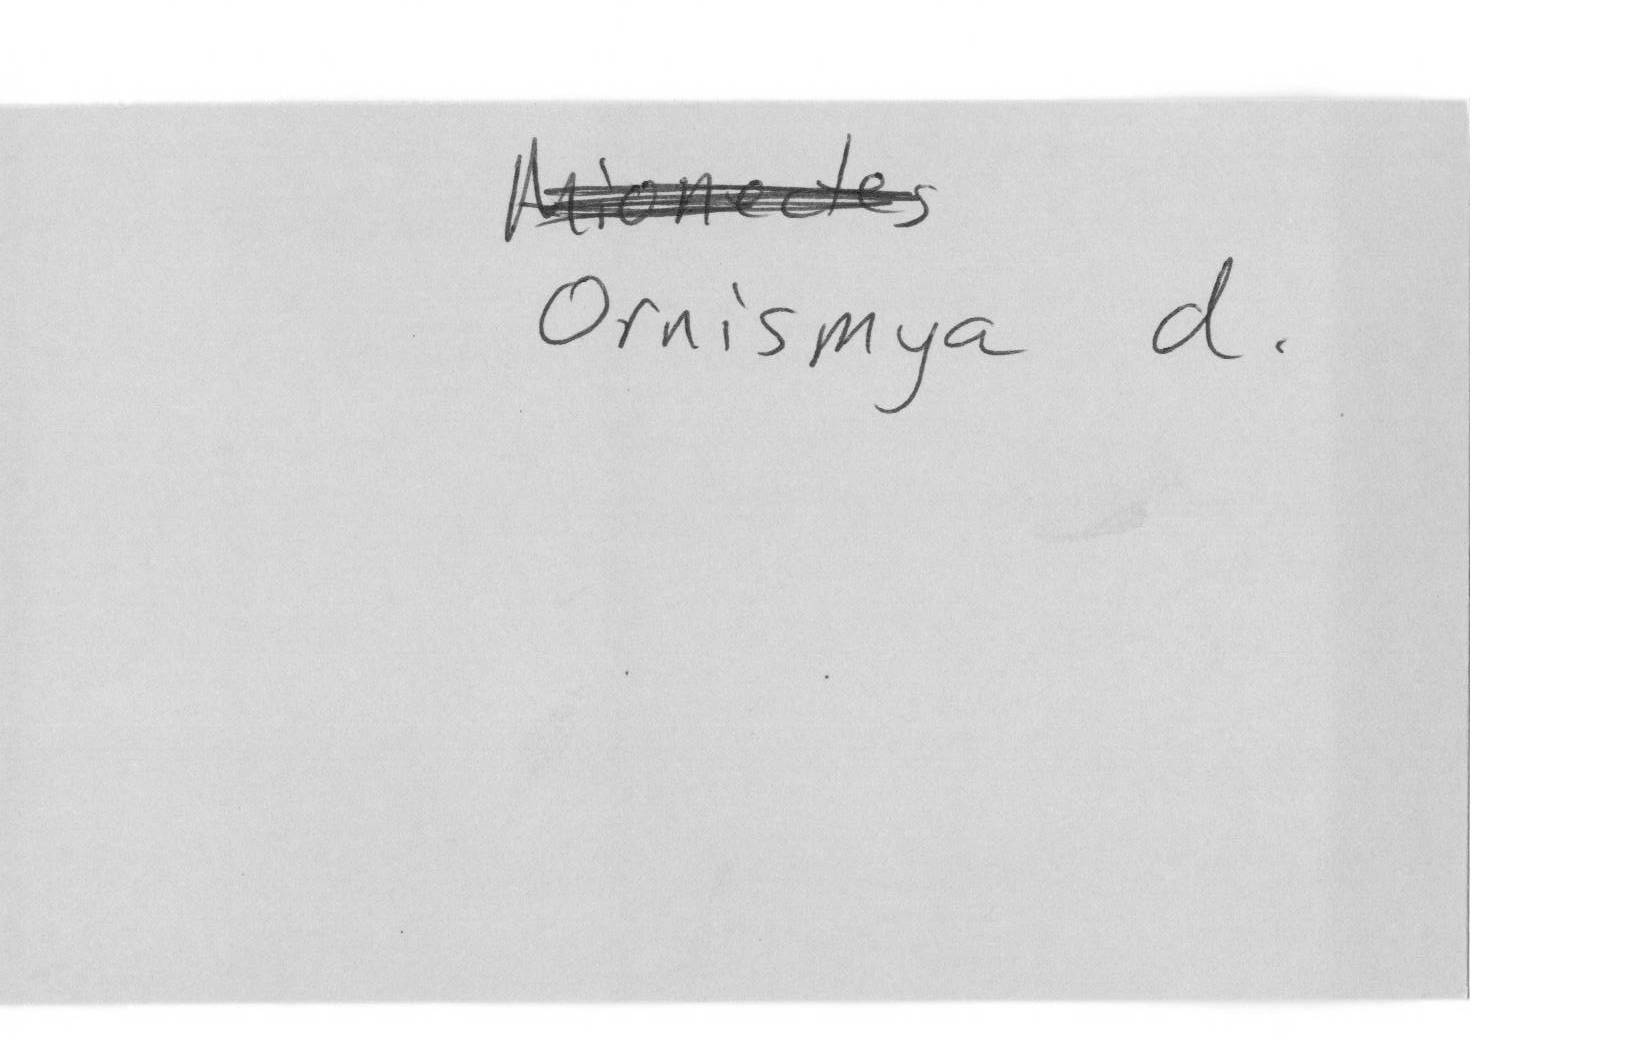 Mionectes
Ornismya d.